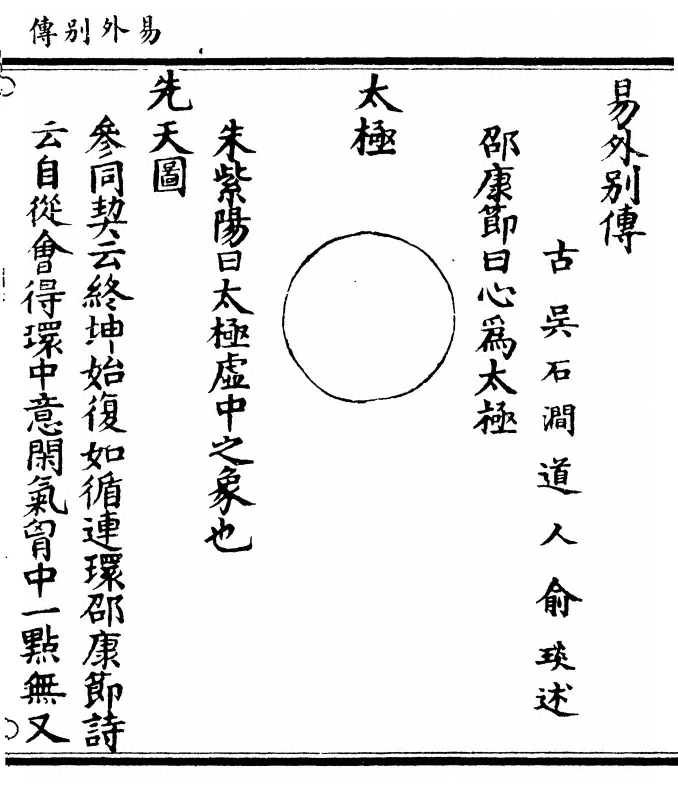 易外別傳
易外別傳
古吳石澗道人俞琰述
邵康節曰心爲太極
太極
朱紫陽曰太極虛中之象也
先天圖
參同契云終坤始復如循連環邵康節詩
云自從會得環中意閑氣胷中一點無又